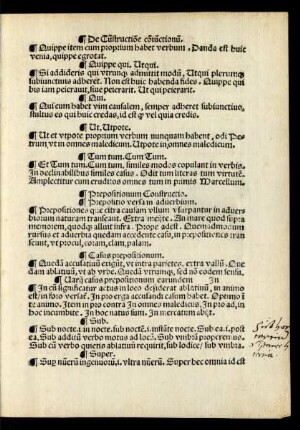 ¶ De Cōstructiōe cōiūctionū.
¶ Quippe item cum proprium habet verbum. Danda est huic
venia, quippe egrotat.
¶ Quippe qui. Utqui.
¶ Si addideris qui vtrunqꝫ admittit modū, Utqui plerumqꝫ
subiunctiuis adheret. Non est huic habenda fides. Quippe qui
bis iam peierauit, siue peierarit. Ut qui peierarit.
¶ Qui.
¶ Qui cum habet vim causalem, semper adheret subiunctiuo,
stultus es qui huic credas, id est qꝫ vel quia credis.
¶ Ut. Utpote.
¶ Ut et vtpote proprium verbum nunquam habent, odi Pe-
trum, vt in omnes maledicum. Utpote in omnes maledicum.
¶ Tum tum. Cum Tum.
¶ Et Tum tum. Cum tum, similes modos copulant in verbis.
In declinabilibus similes casus. Odit tum literas tum virtutē.
Amplectitur cum eruditos omnes tum in primis Marcellum.
¶ Prepositionum Constructio.
¶ Prepositio versa in aduerbium.
¶ Prepositiones que extra casum vsurpantur in aduer-
biorum naturam transeunt. Extra meiite. An mare quod supra
memorem, quodqꝫ alluit infra. Prope adest. Quemadmodum
rursus et aduerbia quedam accedente casu, in prepositiones tran
seunt, vt procul, coram, clam, palam.
¶ Casus prepositionum.
¶ Quedā accusatiuū exigūt, vt intra parietes. extra vallū. Que
dam ablatiuū, vt ab vrbe. Quedā vtrunqꝫ, sed nō eodem sensu.
¶ In cū significatur actus in loco
est, in foro versat. In pro erga accusandi casum habet. Optimo ī
te animo. Item in pro contra In omnes maledicus. In pro ad, in
hoc incumbite. In hoc natus sum. In mercatum abijt.
¶ Sub.
¶ Sub nocte .i. in nocte, sub noctē .i. instāte nocte. Sub ea .i. post
ea, Sub additū verbo motus aut ad locū. Sub vmbrā
Sub cū verbo quietis ablatiuū requirit, sub iudice, sub vmbra.
¶ Super.
¶ Super hec omnia id est